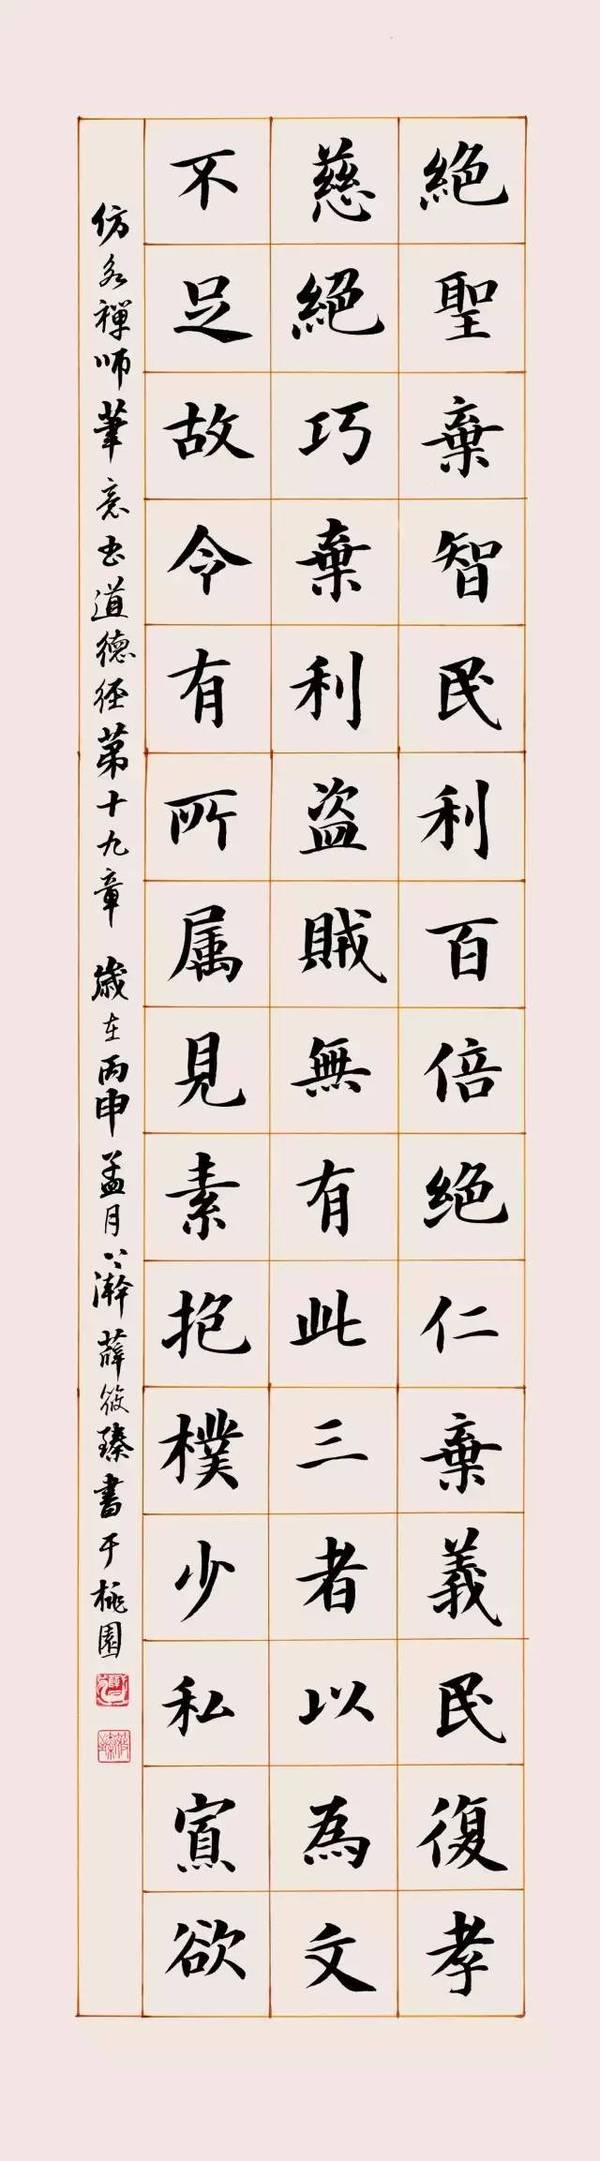 絕聖棄智民利百倍绝仁棄義民復孝
慈絕巧棄利盗賊無有此三者以為文
不足故令有所属見素抱樸少私寡欲
仿永禪师筆意书道德经第十九章 歲在丙申孟月上澣薛筱臻書于桃園